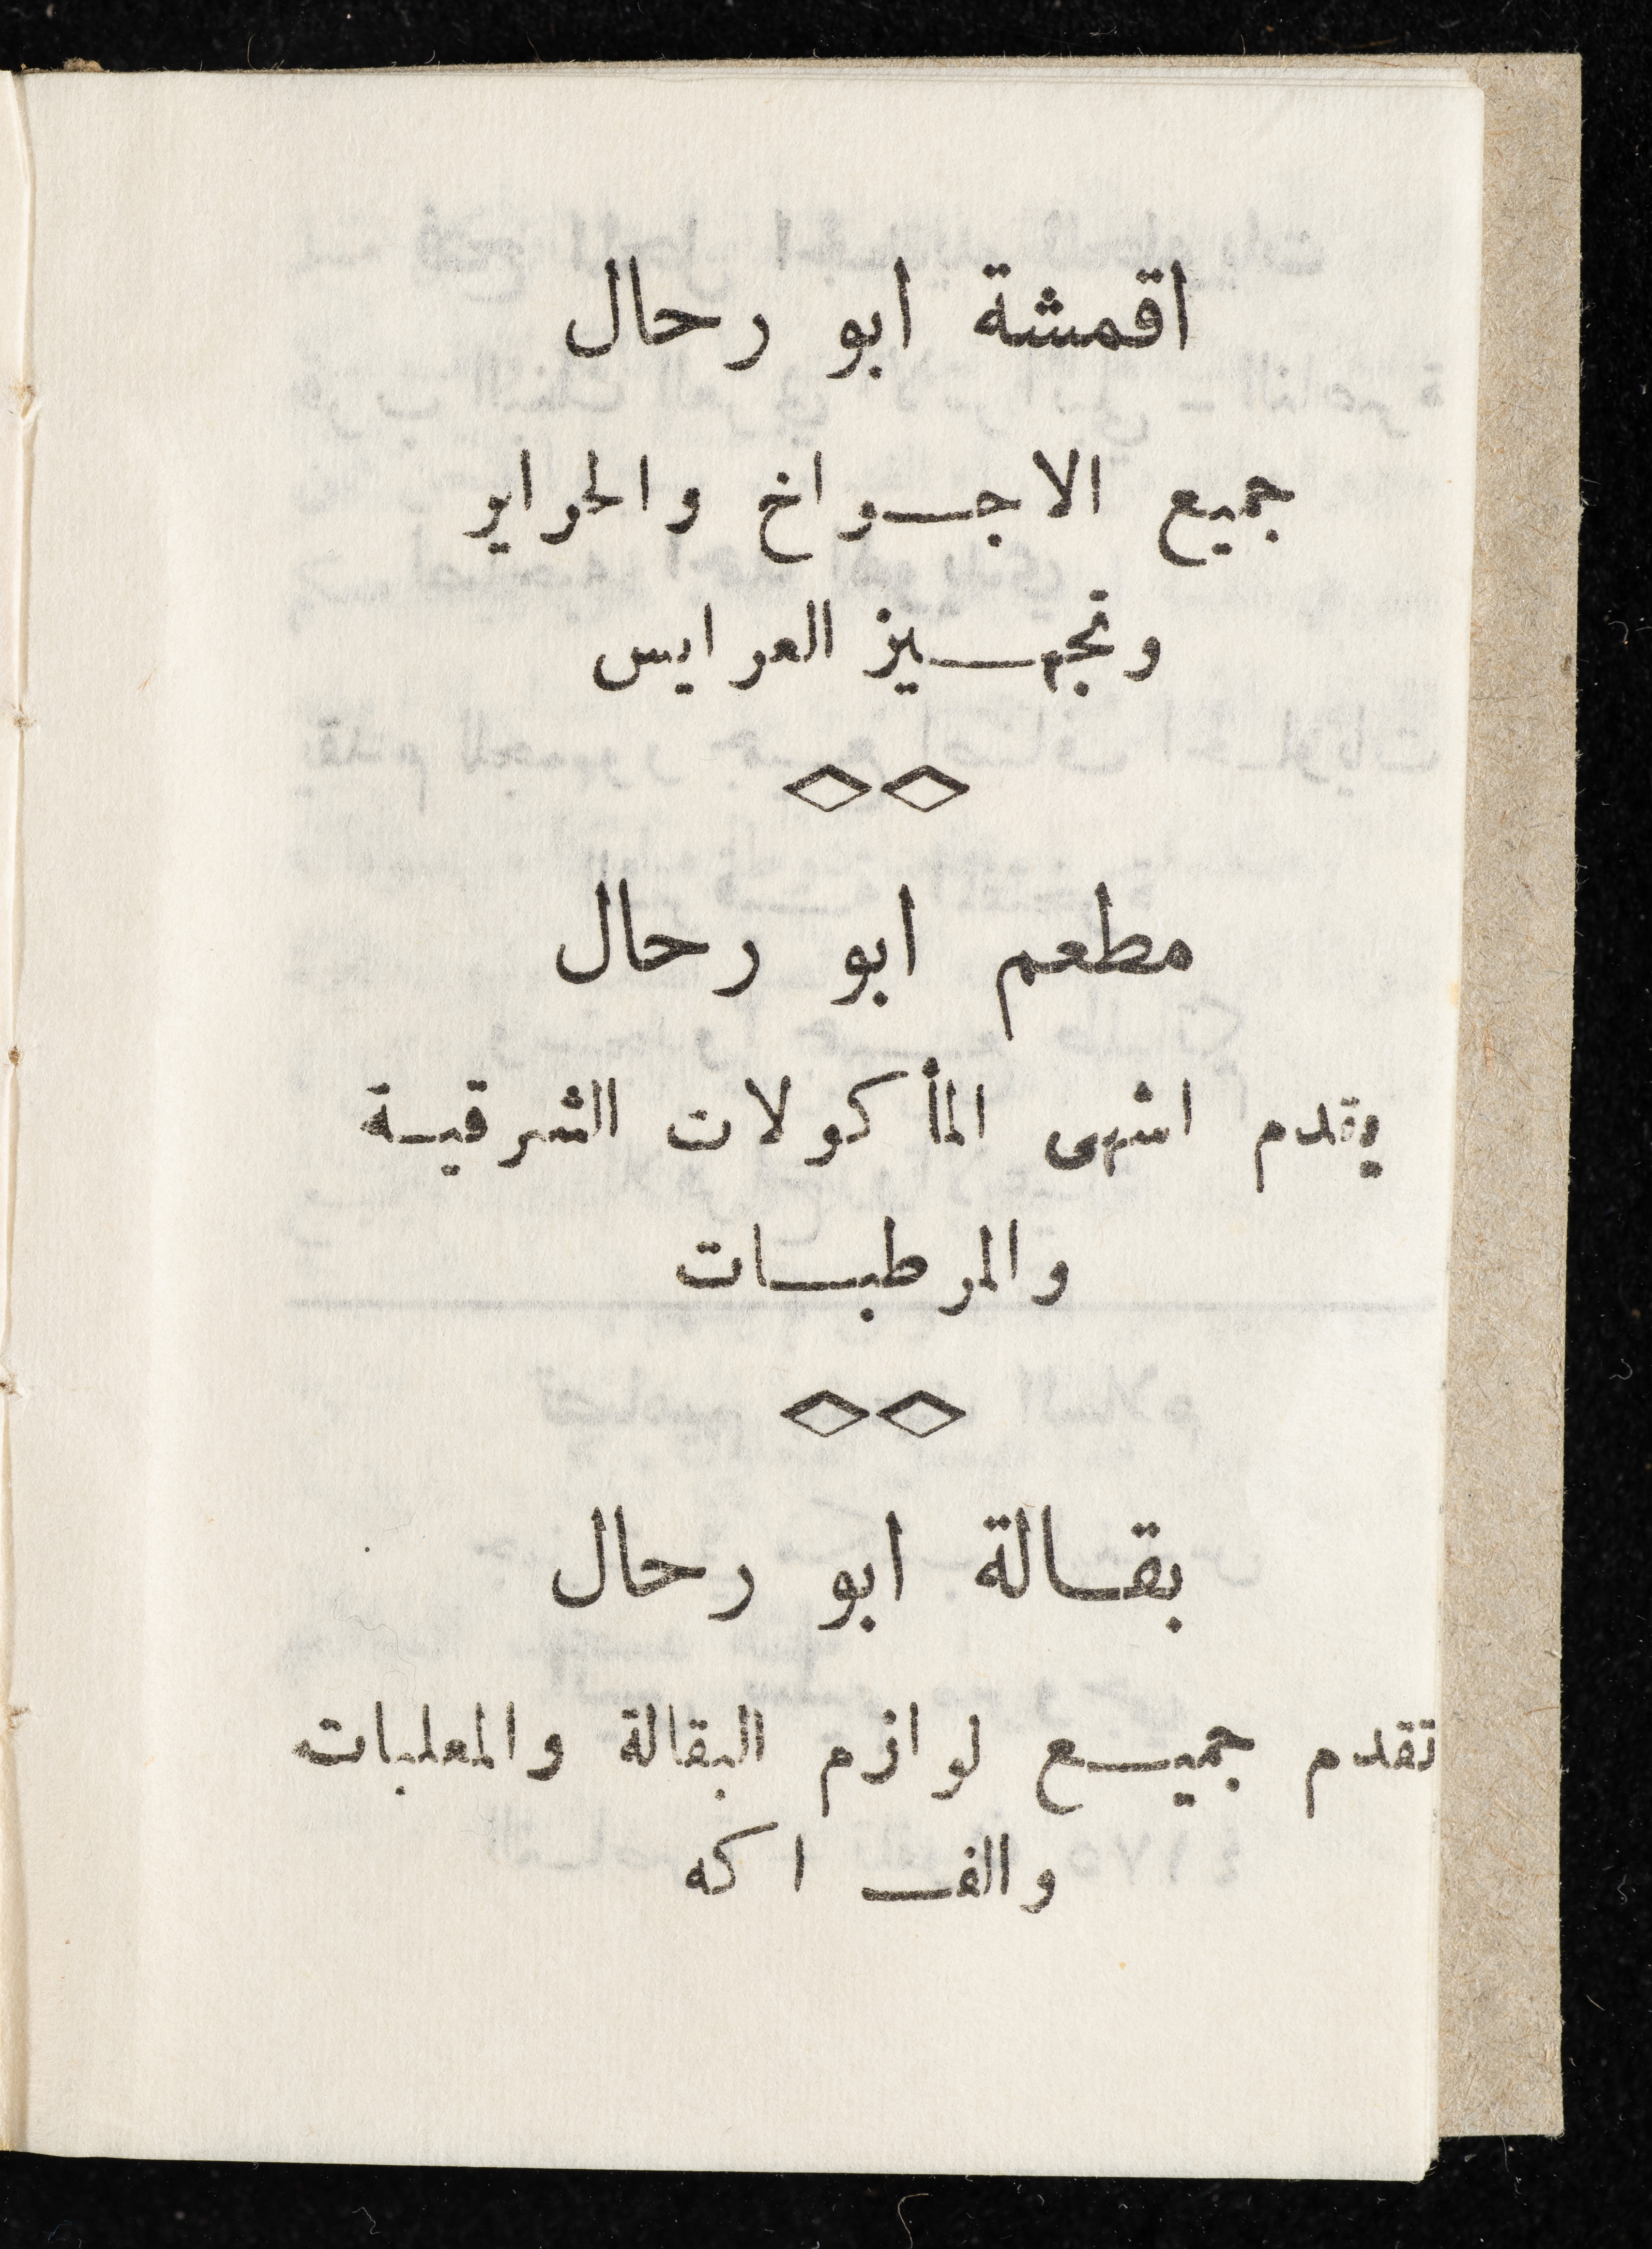 اقمشة ابو رحال
جميع الاجـواخ والحراير
وتجهـيز العرايس
مطعم ابو رحال
يقدم اشهى المأكولات الشرقية
والمرطبـات
بقـالة ابو رحال
تقدم جميـع لوازم البقالة والمعلبات
والفـاكه